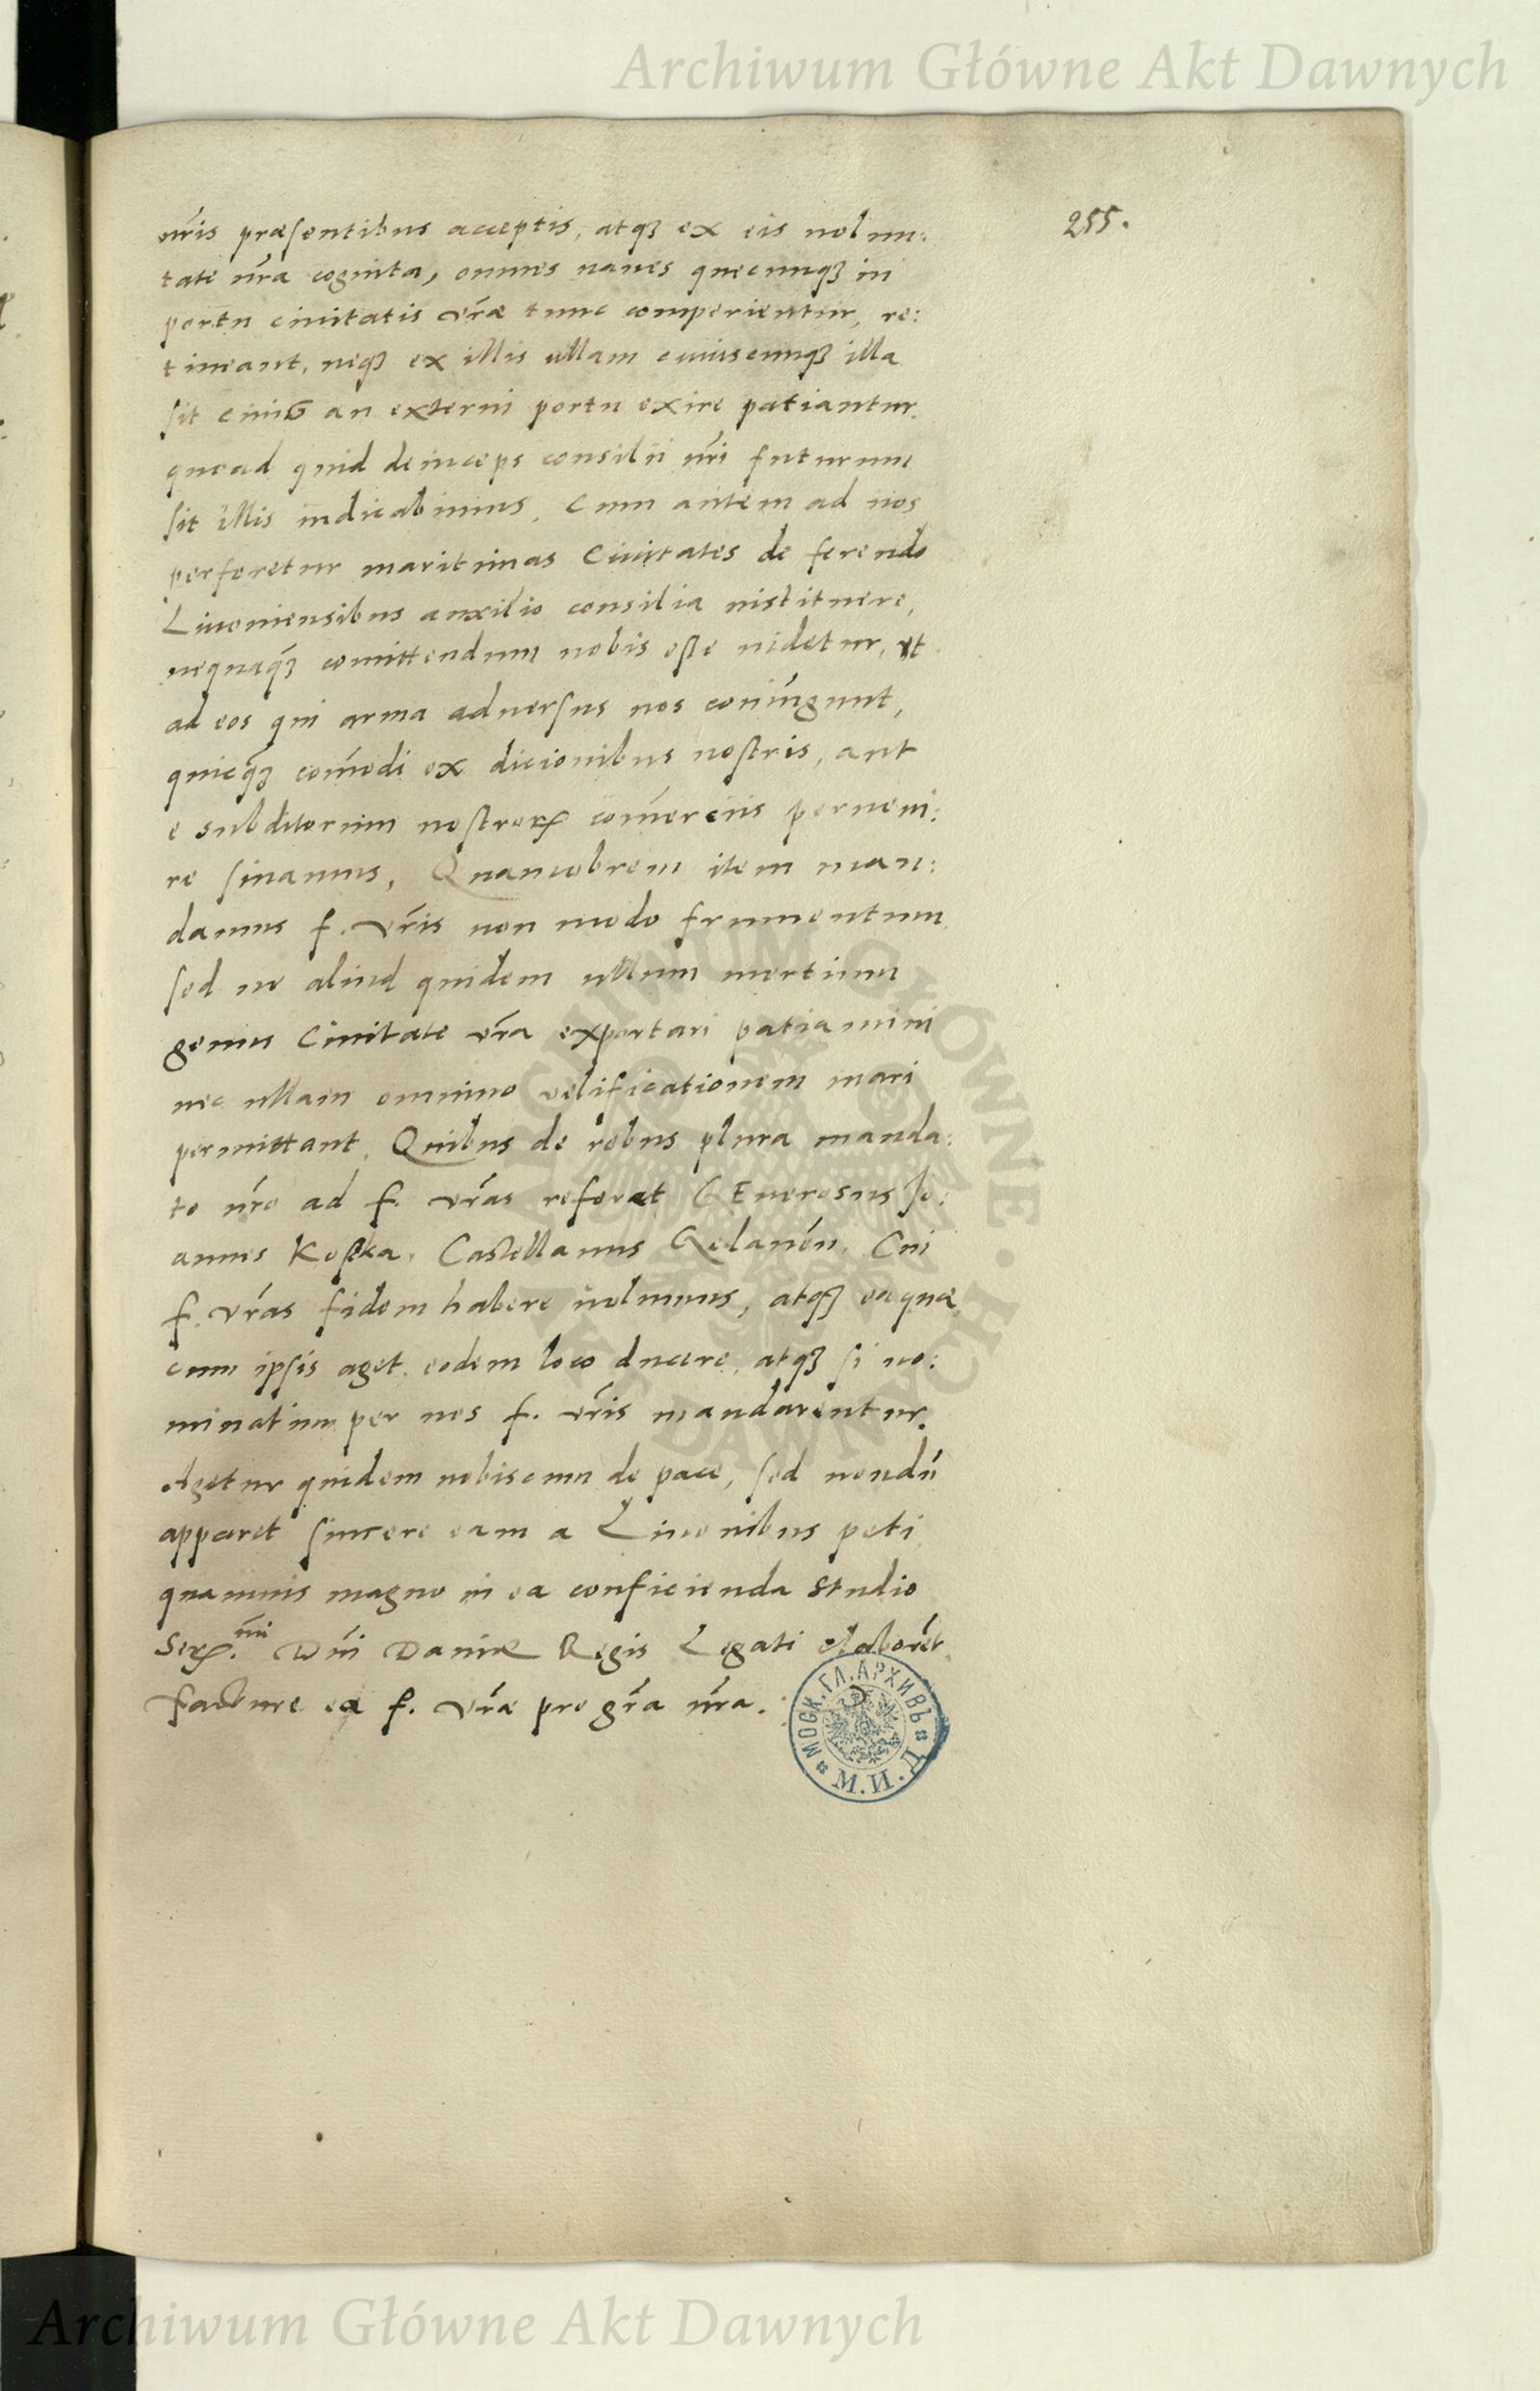 Archiwum Główne Akt Dawnych
255.
nr̃is præsentibus acceptis, atqꝫ ex eis uolun:
tate nr̃a cognita, omnes naues quecunqꝫ in
portu ciuitatis vr̃æ tunc comperientur, re:
tineant, neqꝫ ex illis ullam cuiuscunqꝫ illa
sit ciuis an externi portu exire patiantur.
quoad quid deinceps consilii nr̃i futurum
sit illis indicabimus. Cum autem ad nos
perferetur maritimas Ciuitates de ferendo
Liuoniensibus auxilio consilia instituere,
nequaqꝫ comittendum nobis esse uidetur, vt
ad eos qui arma aduersus nos coniũgunt,
quicqꝫ com̃odi ex dicionibus nostris, aut
e subditorum nostroꝝ com̃erciis perueni:
re sinamus. Quamobrem item man:
damus f. vr̃is non modo frumentum
sed ne aliud quidem ullum mertium
genus Ciuitate vr̃a exportari patiamini
nec ullam omnino velificationem mari
permittant. Quibus de rebus plura manda:
to nr̃o ad f. vr̃as referet GEnerosus Jo:
annes Kostka. Castellanus Gedanen̄. Cui
f. vr̃as fidem habere uolumus, atqꝫ ea quæ
cum ipsis aget eodem loco ducere, atqꝫ si no:
minatim per nos f. vr̃is mandarentur.
Agetur quidem nobiscum de pace, sed nondū
apparet sincere eam a Liuonibus peti
quamuis magno in ea conficienda studio
Serꝝ.mi Dn̄i Daniæ Regis Legati elaborẽt
facture ea f. vr̃æ pro gr̃a nr̃a.
МОСК. ГЛ. АРХИВЪ
М.И.Д
ARCHIWUM GŁÓWNE AKT DAWNYCH
Archiwum Główne Akt Dawnych